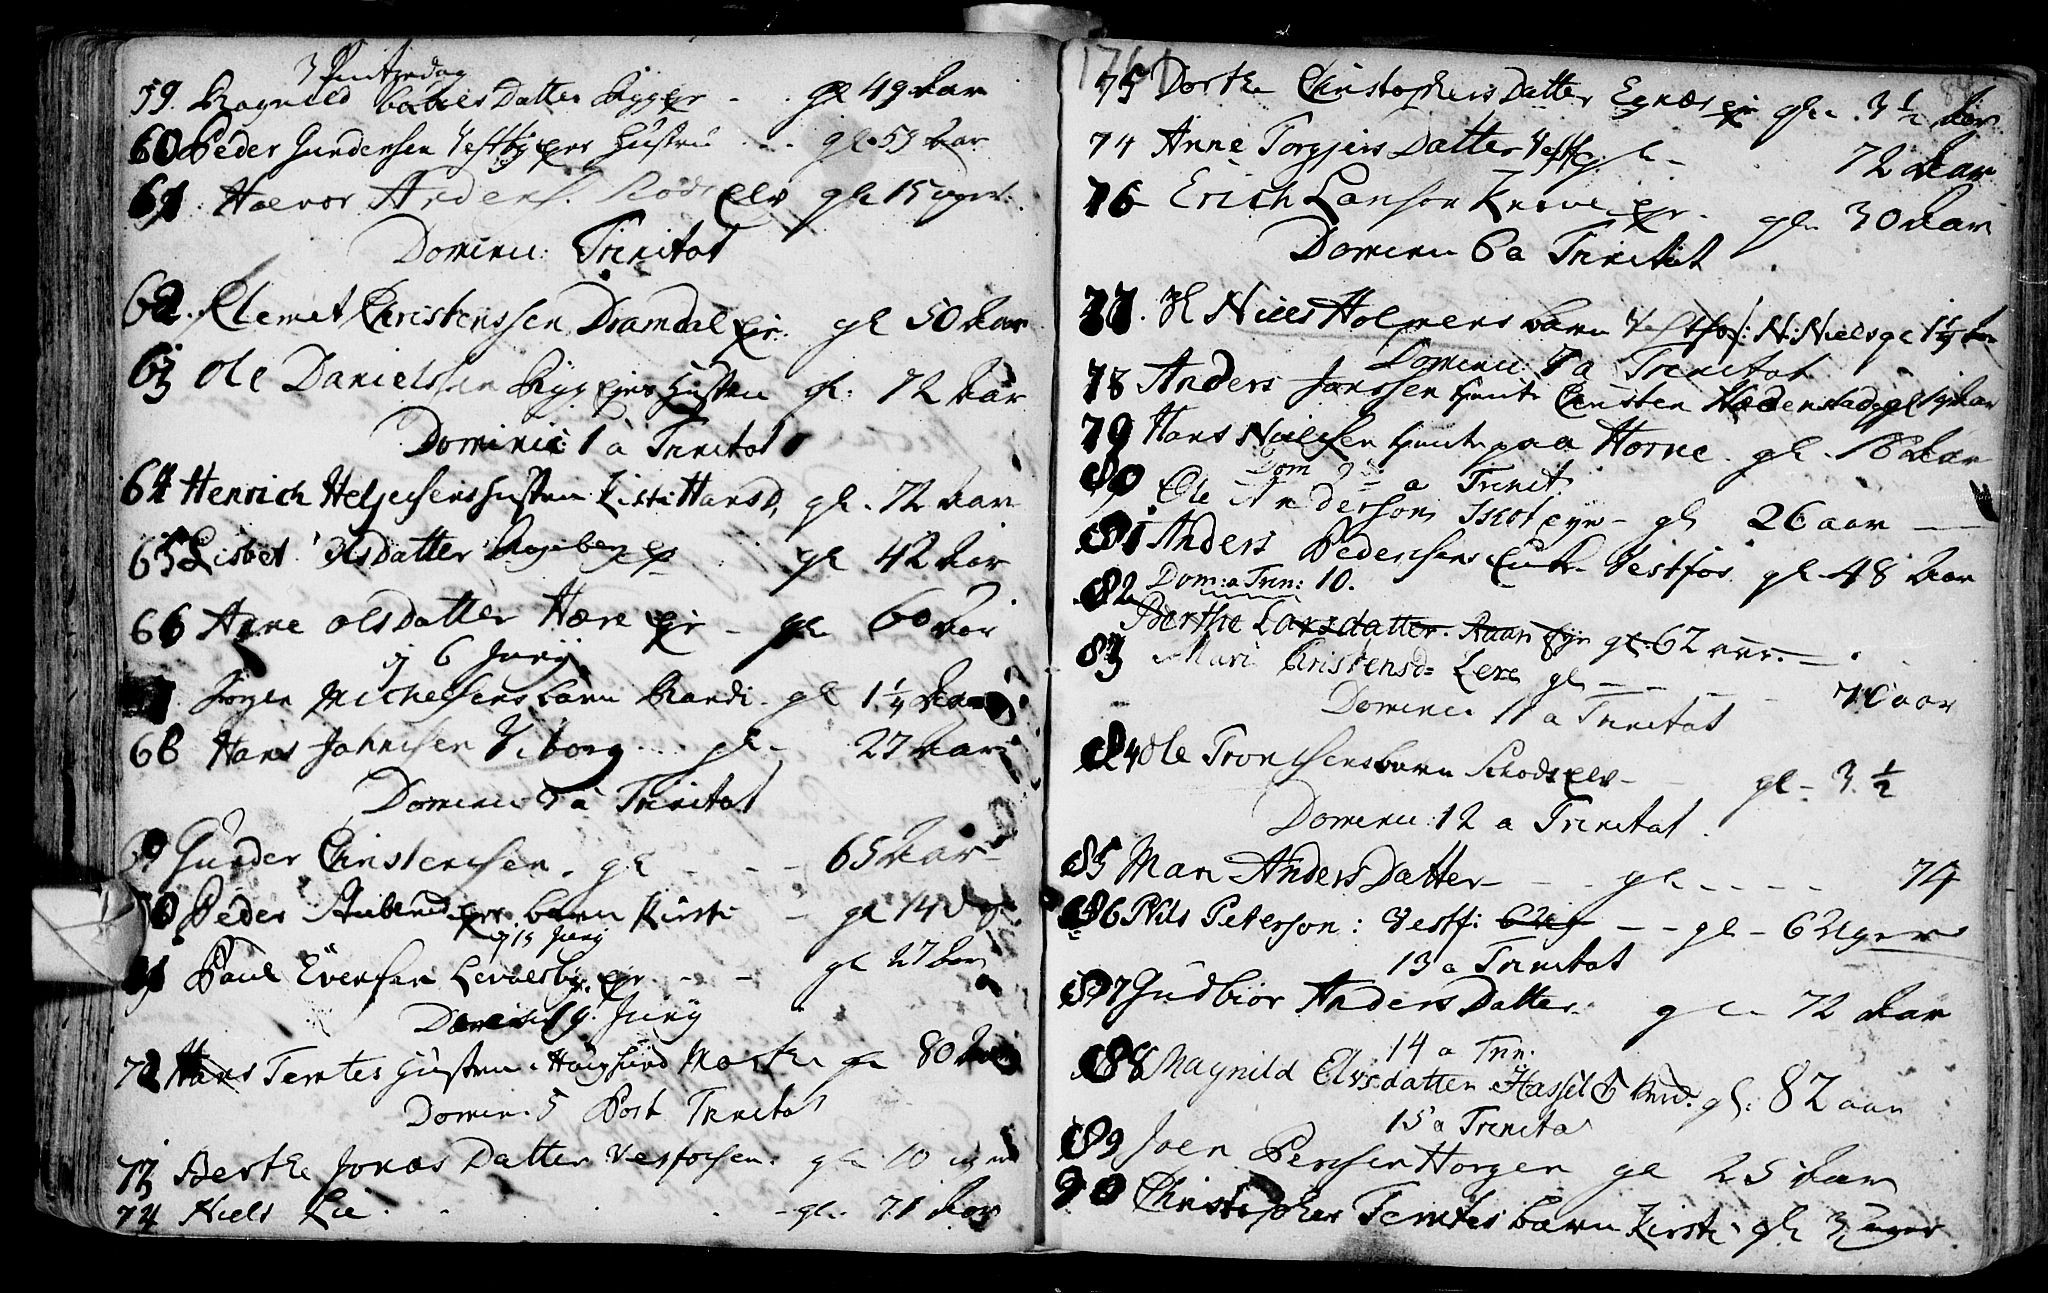 3 Pintzedag
59. Ragnild Datter Rygg ejr - . gl 49 Aar
60 Peder Gundersen Vestby ejers Hustru . . . gl. 53 Aar
61. Halvor Anders. Elv gl 15 uger
Dominic: Trinitat
62. Clemet Christenssen Dramdal ejr. gl 50 Aar
63 Ole Danielssen Rygg ejers Hustru gl: 72 Aar
Dominic: 1 a Trinitat
64 Henrich Helgesens hustru Kirsti Hansd. gl. 72 Aar
65 Lisbet Olsdatter gl 42 Aar
66 Anne Olsdatter Hære ejr - gl 60 Aar
d 6 Junij
Jørgen Michelsens barn Randi. gl 1 1/4 Aar
68 Hans Johnsen Viborg ... gl - 27 Aar
Dominic 3 a Trinitat
Gunder Christensen. gl - - - 65 Aar
Peder Stubberud ejers barn Kirsti - gl 14 Dage
d 15 Junij
Paul Evensen ejr. - - gl 27 Aar
19 Junij
72 Hans Temtes Hustru. Haugsund Marthe gl 80 Aar
Domin. 5 Post Trinitat
73 Berthe Jonas Datter Vestfossen. gl. 10 uger
74 Niels Lie . . . . - gl. 71 Aar
1761
75 Dorthe Christophers Datter Egnes ejr gl. . 3 1/2 Aar
74 Anne Torgjers Datter Vestf. gl - 72 Aar
76 Erich Larsen Knive ejr. gl. 30 Aar
Dominic 6 a Trinitat
77. H Niels Holmens barn Vestfos: N: Niels gl 1 1/2 Aar
Dominic: 7 a Trinitat
78 Anders Jonssen hunt Christen Hedenstad gl 19 Aar
79 Hans Nielsen hunt paa Horne. gl. 18 Aar
Dom 9 a Trinit
80 Ole Anderson Skot ejr - gl 26 aar -
81 Anders Pedersens Enke Vestfos gl. 48 Aar
82 Dom: a Trin: 10.
Berthe Larsdatter. Aaen Ejr gl. 62 aar. -
83 Mari Christensd= gl - - - - 70 aar
Dominic. 11 a Trinitat
84 Ole Tronsens barn Skodselv - gl - 3 1/2
Dominic: 12 a Trinitat.
85 Mari Anders Datter - - - . gl - - - - 74
86 Nils Peterson: Vestf: 6 Ug - - gl - 6 Uger
13 a Trinitat
87 Gudbiør Anders Datter. gl. 72 Aar
14 a Trin.
88 Magnild Elvsdatter Hassel gl: 82 aar
15 a Trinitat
89 Joen Perssen Horgen gl 25 Aar
90 Christopher Temtes barn Kirsti - gl 3 uger